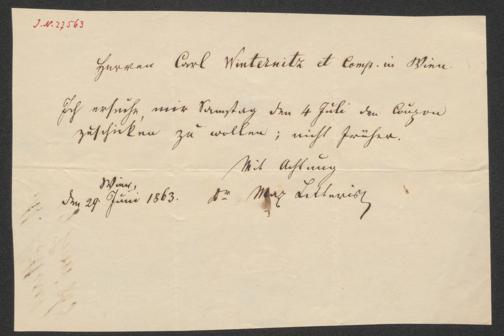 J.N. 27563
Herren Carl Winternitz et Comp. in Wien.
Ich ersuche mir Samstag den 4 Juli den Coupon
zuschicken zu wollen; nicht früher.
Mit Achtung
Wien,
den 29 Juni 1863.
Dr Max Letteris